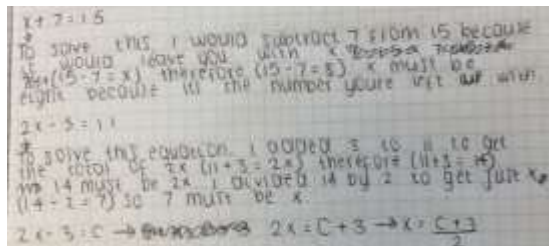 x + 7 = 15
To solve this I would subtract 7 from 15 because
it would leave you with x
(15 - 7 = x) therefore (15 - 7 = 8) x must be
eight because its the number youre left with.
2x - 3 = 11
To solve this equation I added 3 to 11 to get
the total of 2x (11 + 3 = 2x) therefore (11 + 3 = 14)
14 must be 2x. I divided 14 by 2 to get just x.
(14 ÷ 2 = 7) so 7 must be x.
2x - 3 = C → 2x = C + 3 → x = C + 3
2